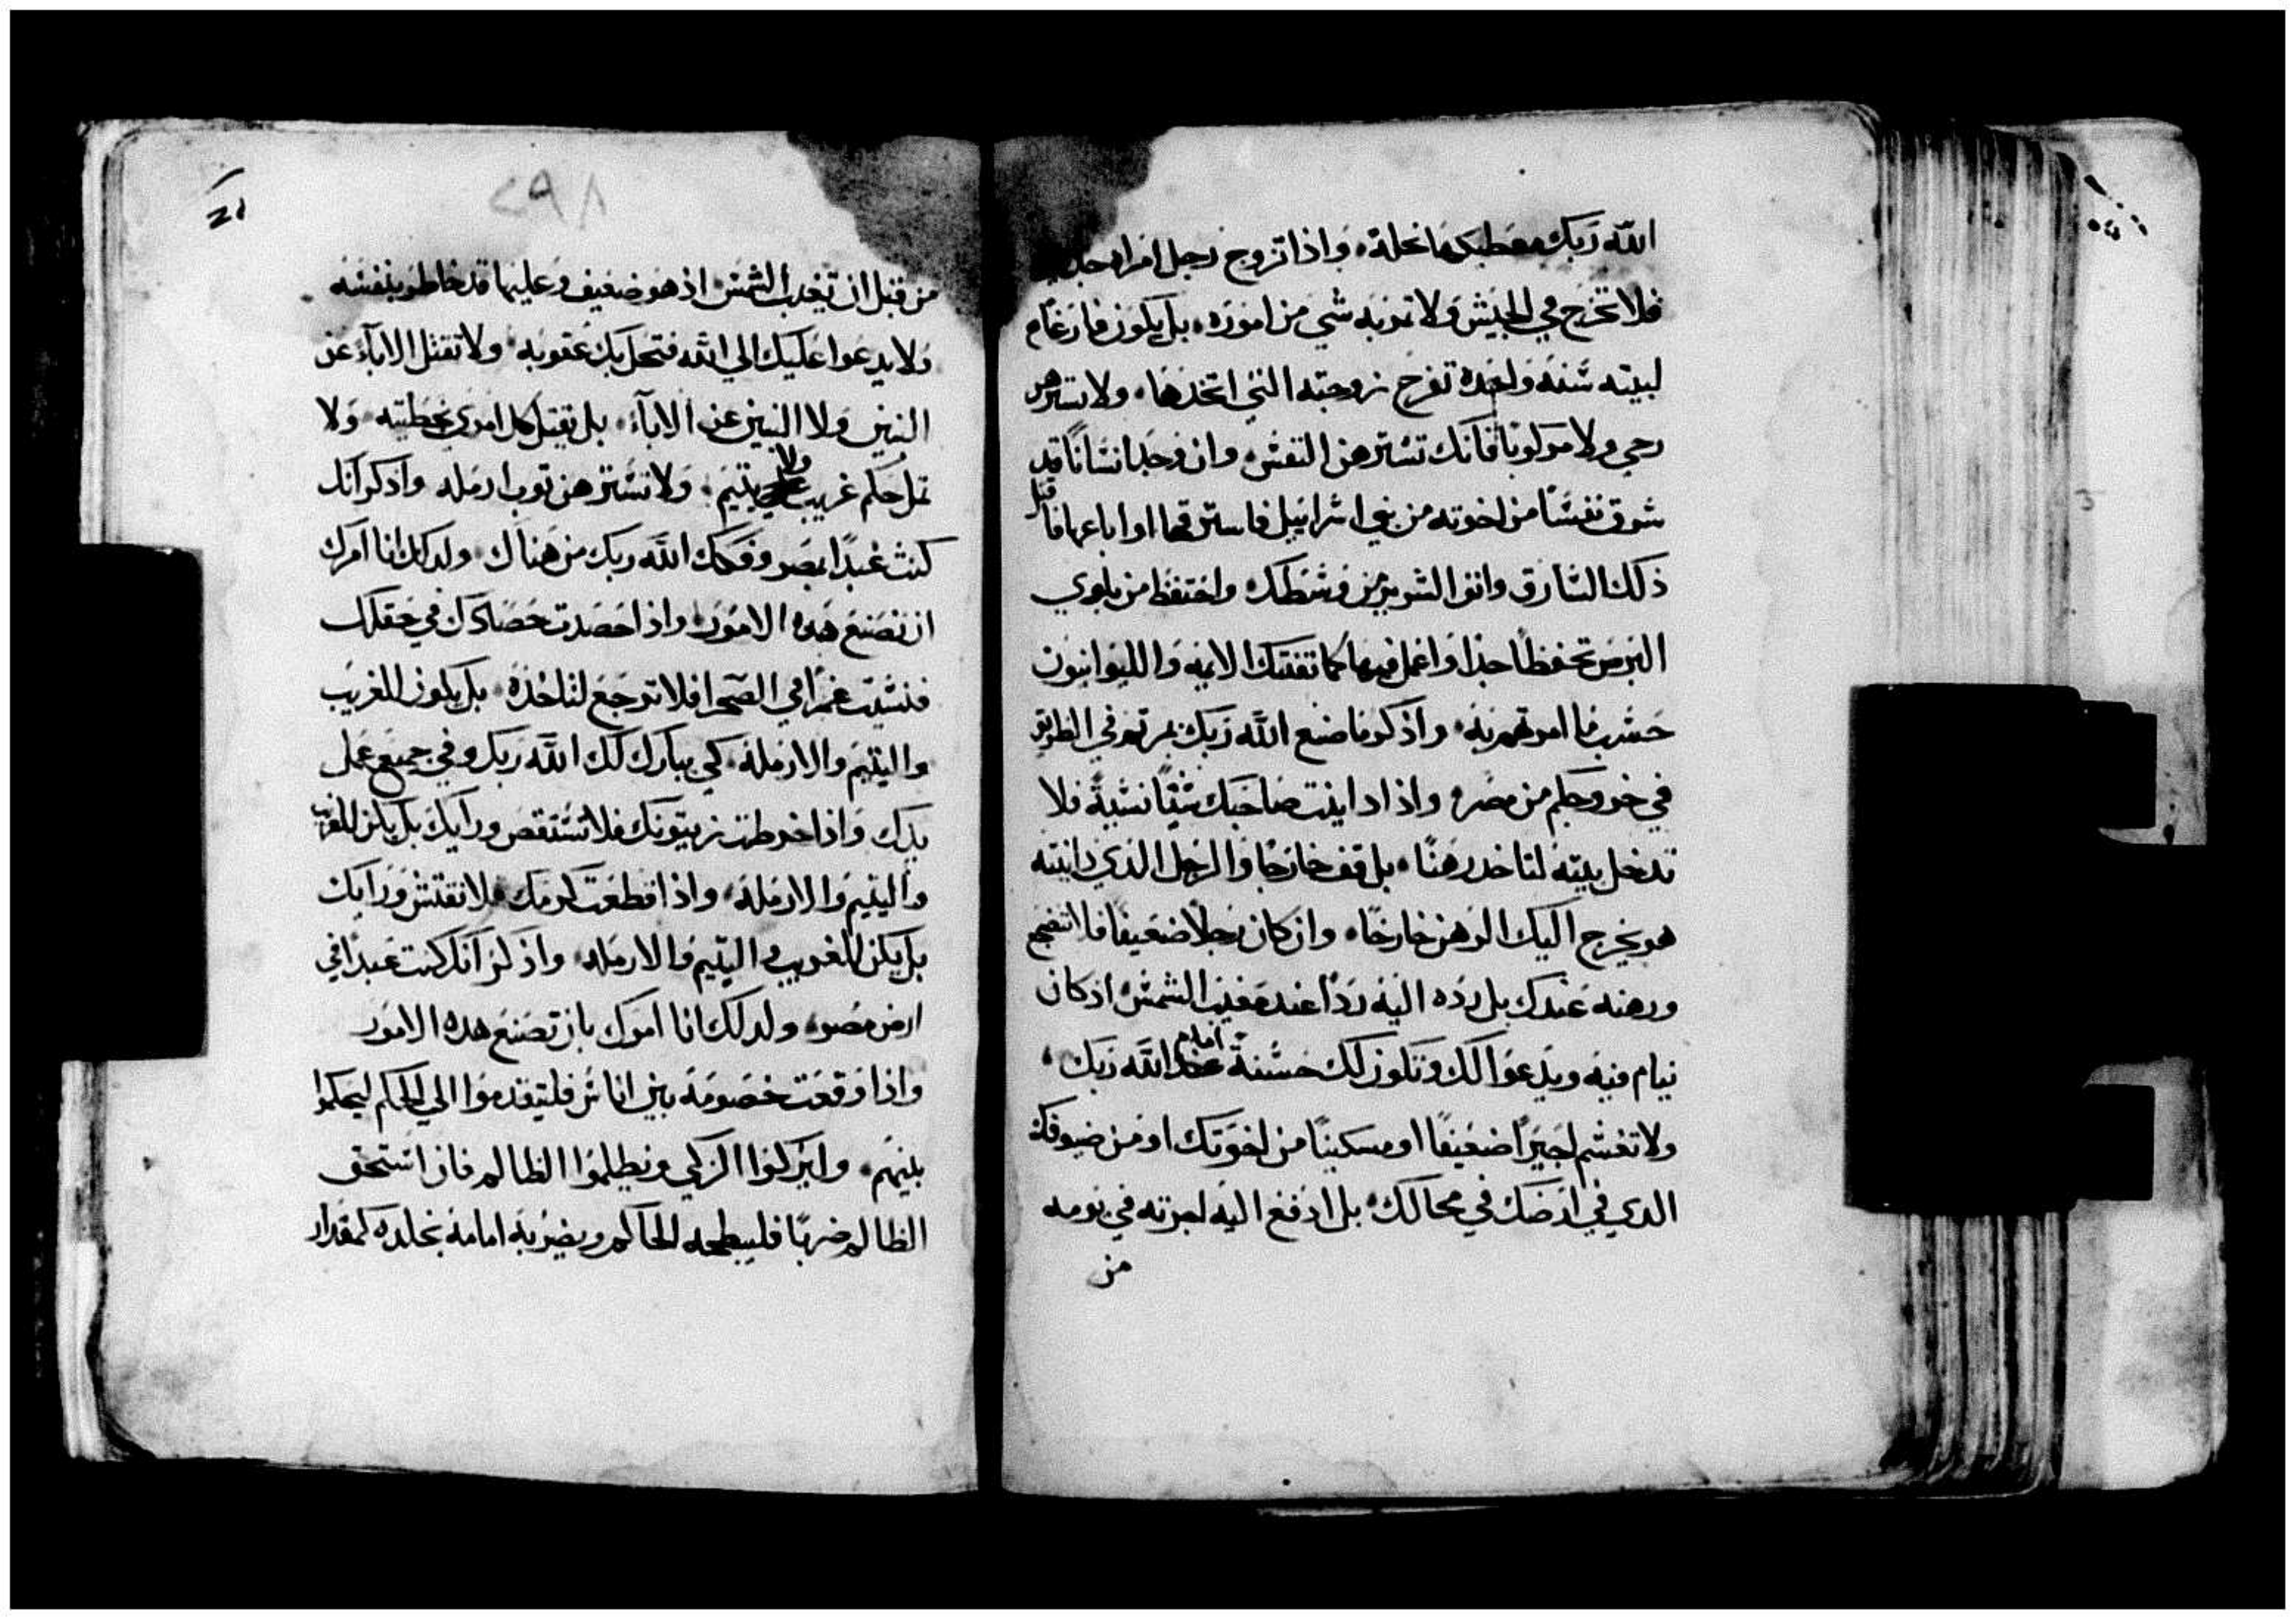 الله ربك معطيكها نحلة، واذا تزوج رجل امراه جديده
فلا تخرج في الجيش ولا تنوبه شي من اموره، بل يكون فارغا في
لبيته سنه واحده تفرح زوجته التي اتخذها، ولا تسترهن
رحي ولا مرلوبا فانك تسترهن النفس، وان وجد انسانا قد
سرق نفسا من اخوته من بني اسراييل فاسترقها او اباعها فاقتل
ذلك السارق وانف الشريرين من وسطك، واحتفظ من بلوي
البرص تحفظا جدا واعمل فيها كما تفتيك الايمه والليوانيون
حسب ما امرتهم به، واذكر ما صنع الله ربك بمريم في الطريق
في خروجكم من مصر، واذا داينت صاحبك شيا نسية فلا
تدخل بيته لتاخد رهنا، بل قف خارجا والرجل الذي داينته
هو يخرج اليك الرهن خارجا، وان كان رجلا ضعيفا فلا تضجع
ورهنه عندك بل رده اليه ردا عند مغيب الشمس اذ كان
نيام فيه ويدعوا لك وتكون لك حسنة امام الله ربك،
ولا تغشم اجيرا ضعيفا او مسكينا من اخوتك او من ضيوفك
الدي في ارضك في محالك، بل ادفع اليه اجرته في يومه
من
٢٩٨
من قبل ان تغرب الشمس، اذ هو ضعيف وعليها قد خاطر بنفسه
ولا يدعوا عليك الي الله فتحل بك عقوبه، ولا تقتل الاباء عن
البنين ولا البنين عن الاباء، بل يقتل كل امري بخطيته، ولا
تمل حكم غريب ولا يتيم، ولا تسترهن توب ارمله واذكر انك
كنت عبدا بمصر وفكك الله ربك من هناك، ولدلك انا امرك
ان تصنع هده الامور، واذا حصدت حصادك في حقلك
فنسيت غمرا في الصحرا فلا ترجع لتاخذه، بل يكون للغريب
واليتيم والارملة، كي يبارك لك الله ربك في جميع عمل
يدك واذا خرطت زيتونك فلا تستقص ورايك بل يكن للغريب
واليتيم والارملة، واذا قطعت كرمك فلا تفتش ورايك
بل يكن للغريب واليتيم والارمله، واذكر انك كنت عبدا في
ارض مصر، ولدلك انا امرك بان تصنع هده الامور
واذا وقعت خصومة بين اناس فليتقدموا الي الحكم ليحكموا
بينهم، وليزكوا الزكي ويظلموا الظالم فان استحق
الظالم ضربا فليبطحه الحاكم ويضربه امامه بجلده كمقدار